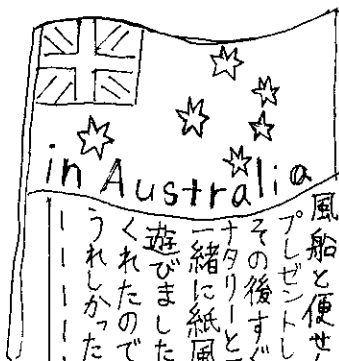 in Australia
風船と便せ
プレゼントし
その後すぐ
ナタリーと
一緒に紙風
遊びました
くれたので
うれしかった